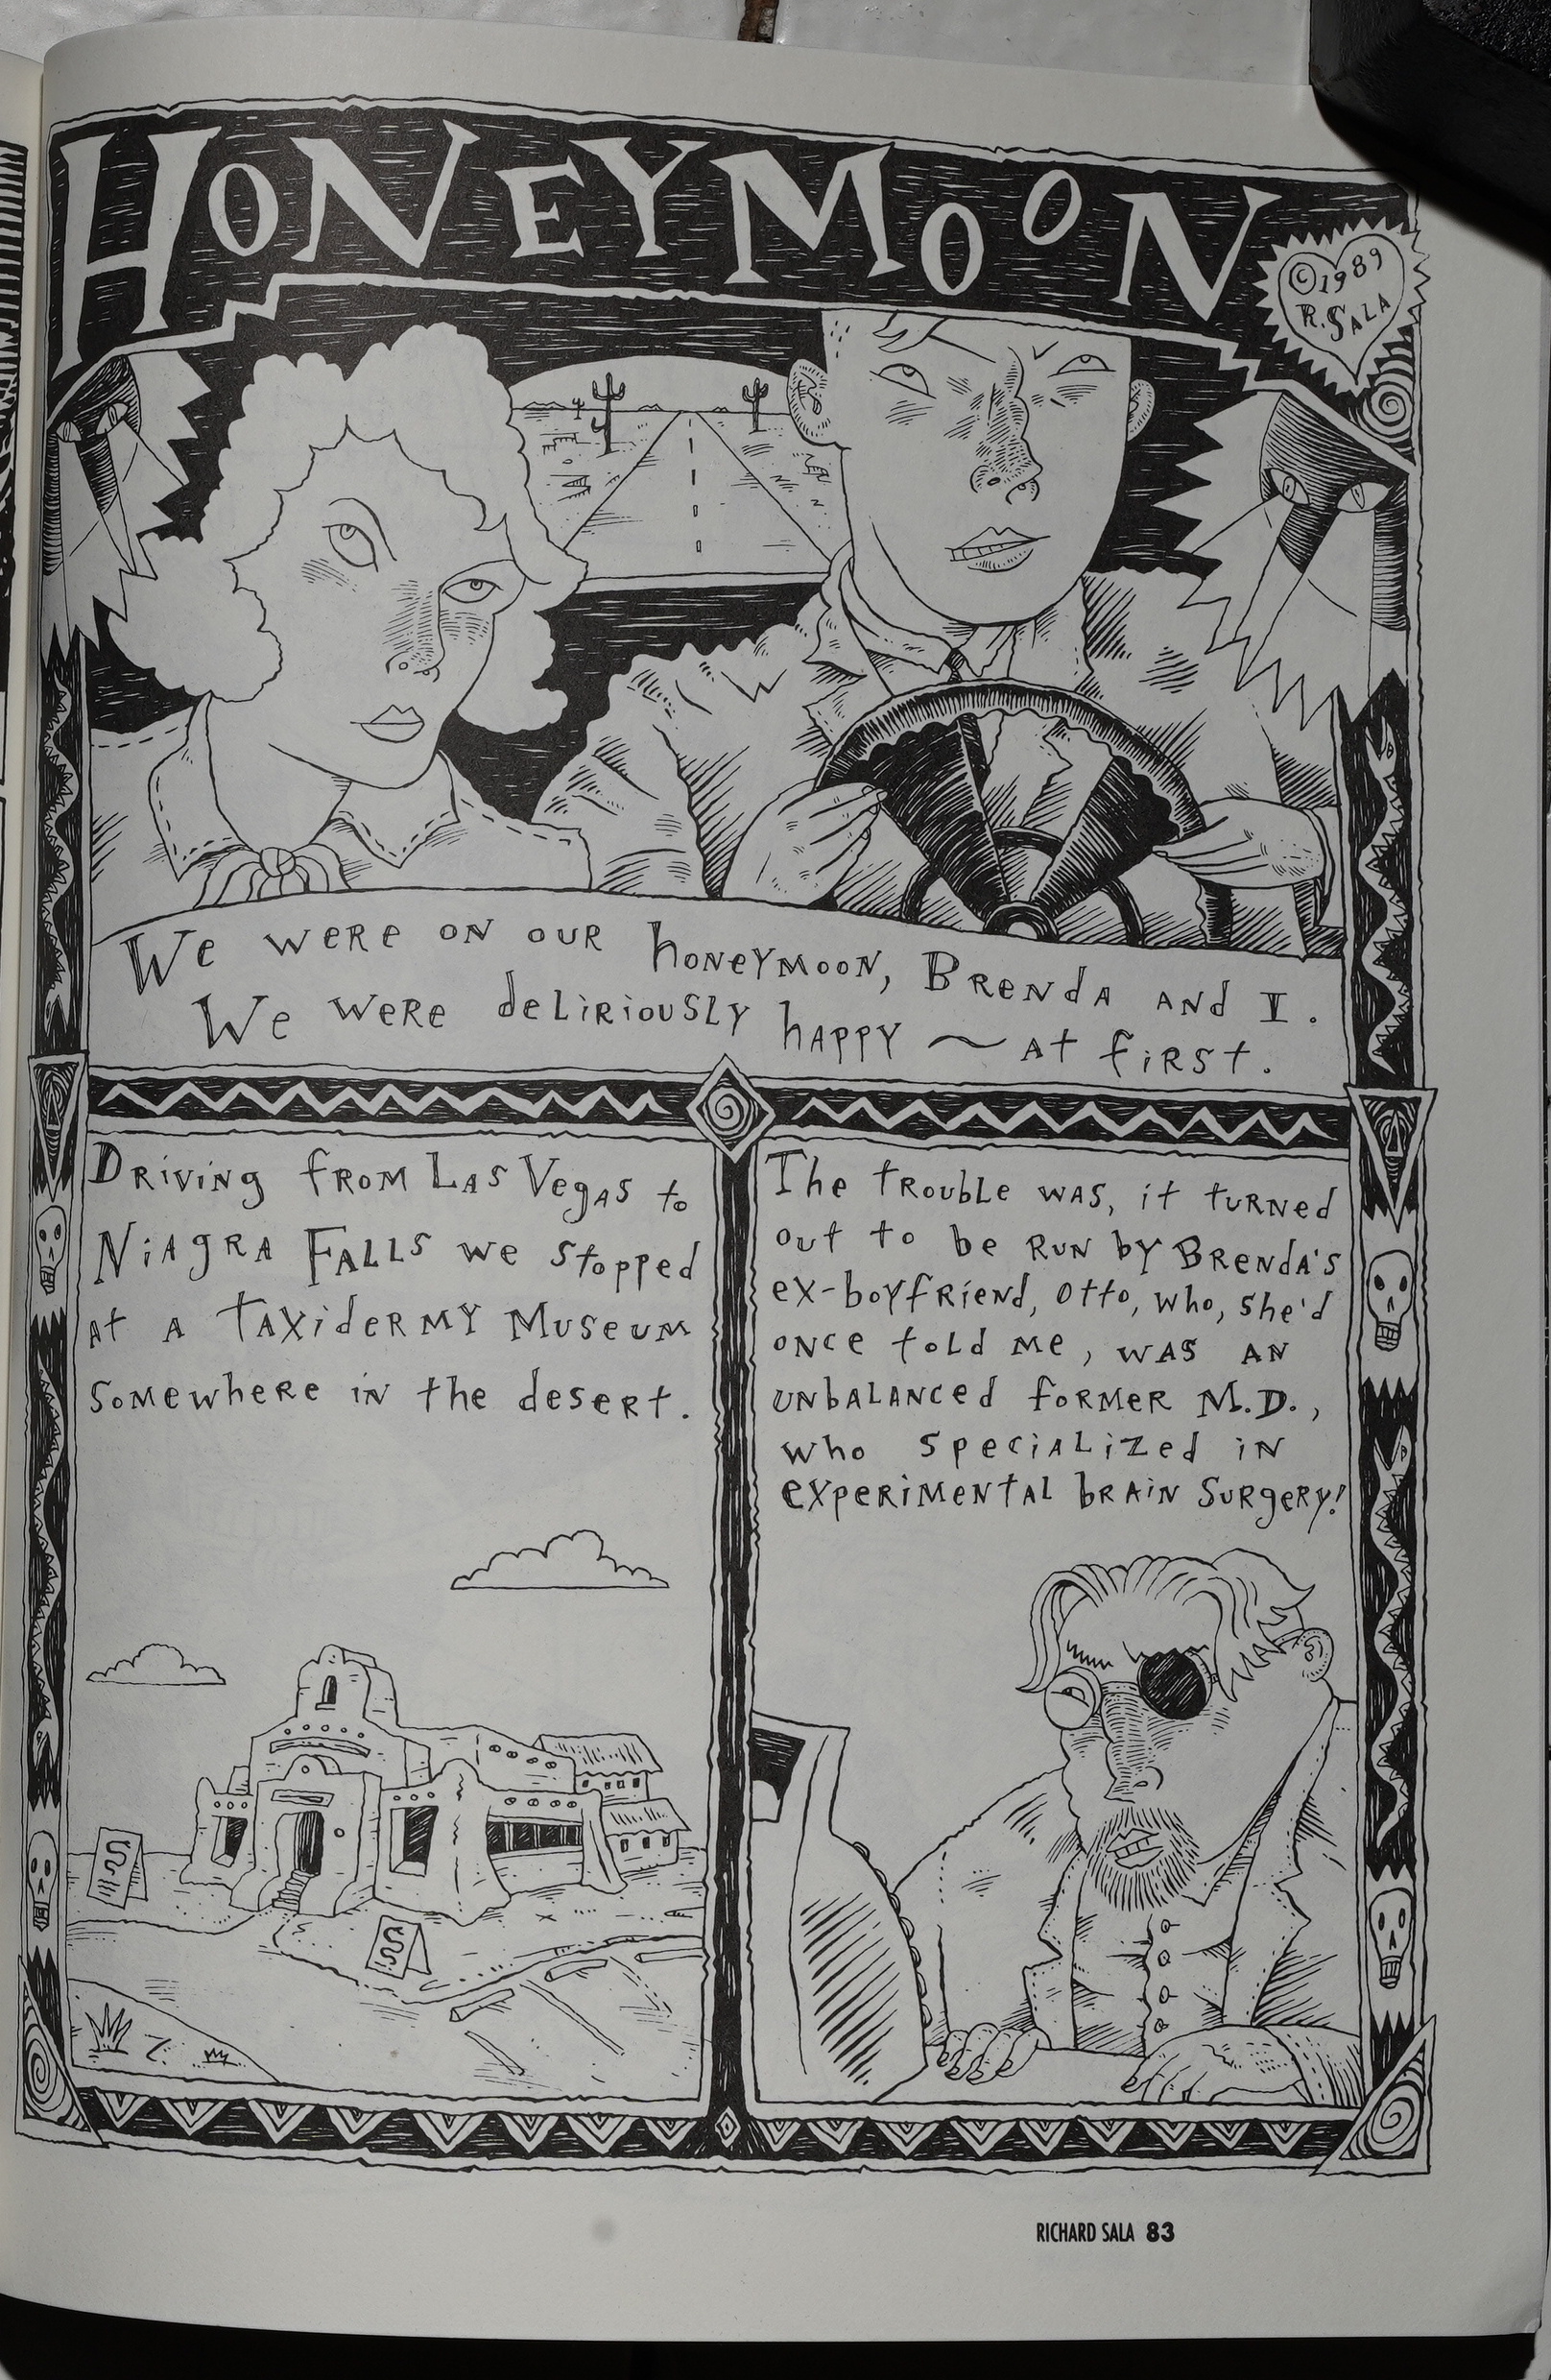 HONEYMOON
©1989
R. SALA
We were on our honeymoon, Brenda and I.
We were deliriously happy ~ at first.
Driving from Las Vegas to
Niagra Falls we stopped
at a Taxidermy Museum
somewhere in the desert.
The trouble was, it turned
out to be run by Brenda's
ex-boyfriend, Otto, who, she'd
once told me, was an
unbalanced former M.D.,
who specialized in
experimental brain surgery!
RICHARD SALA 83